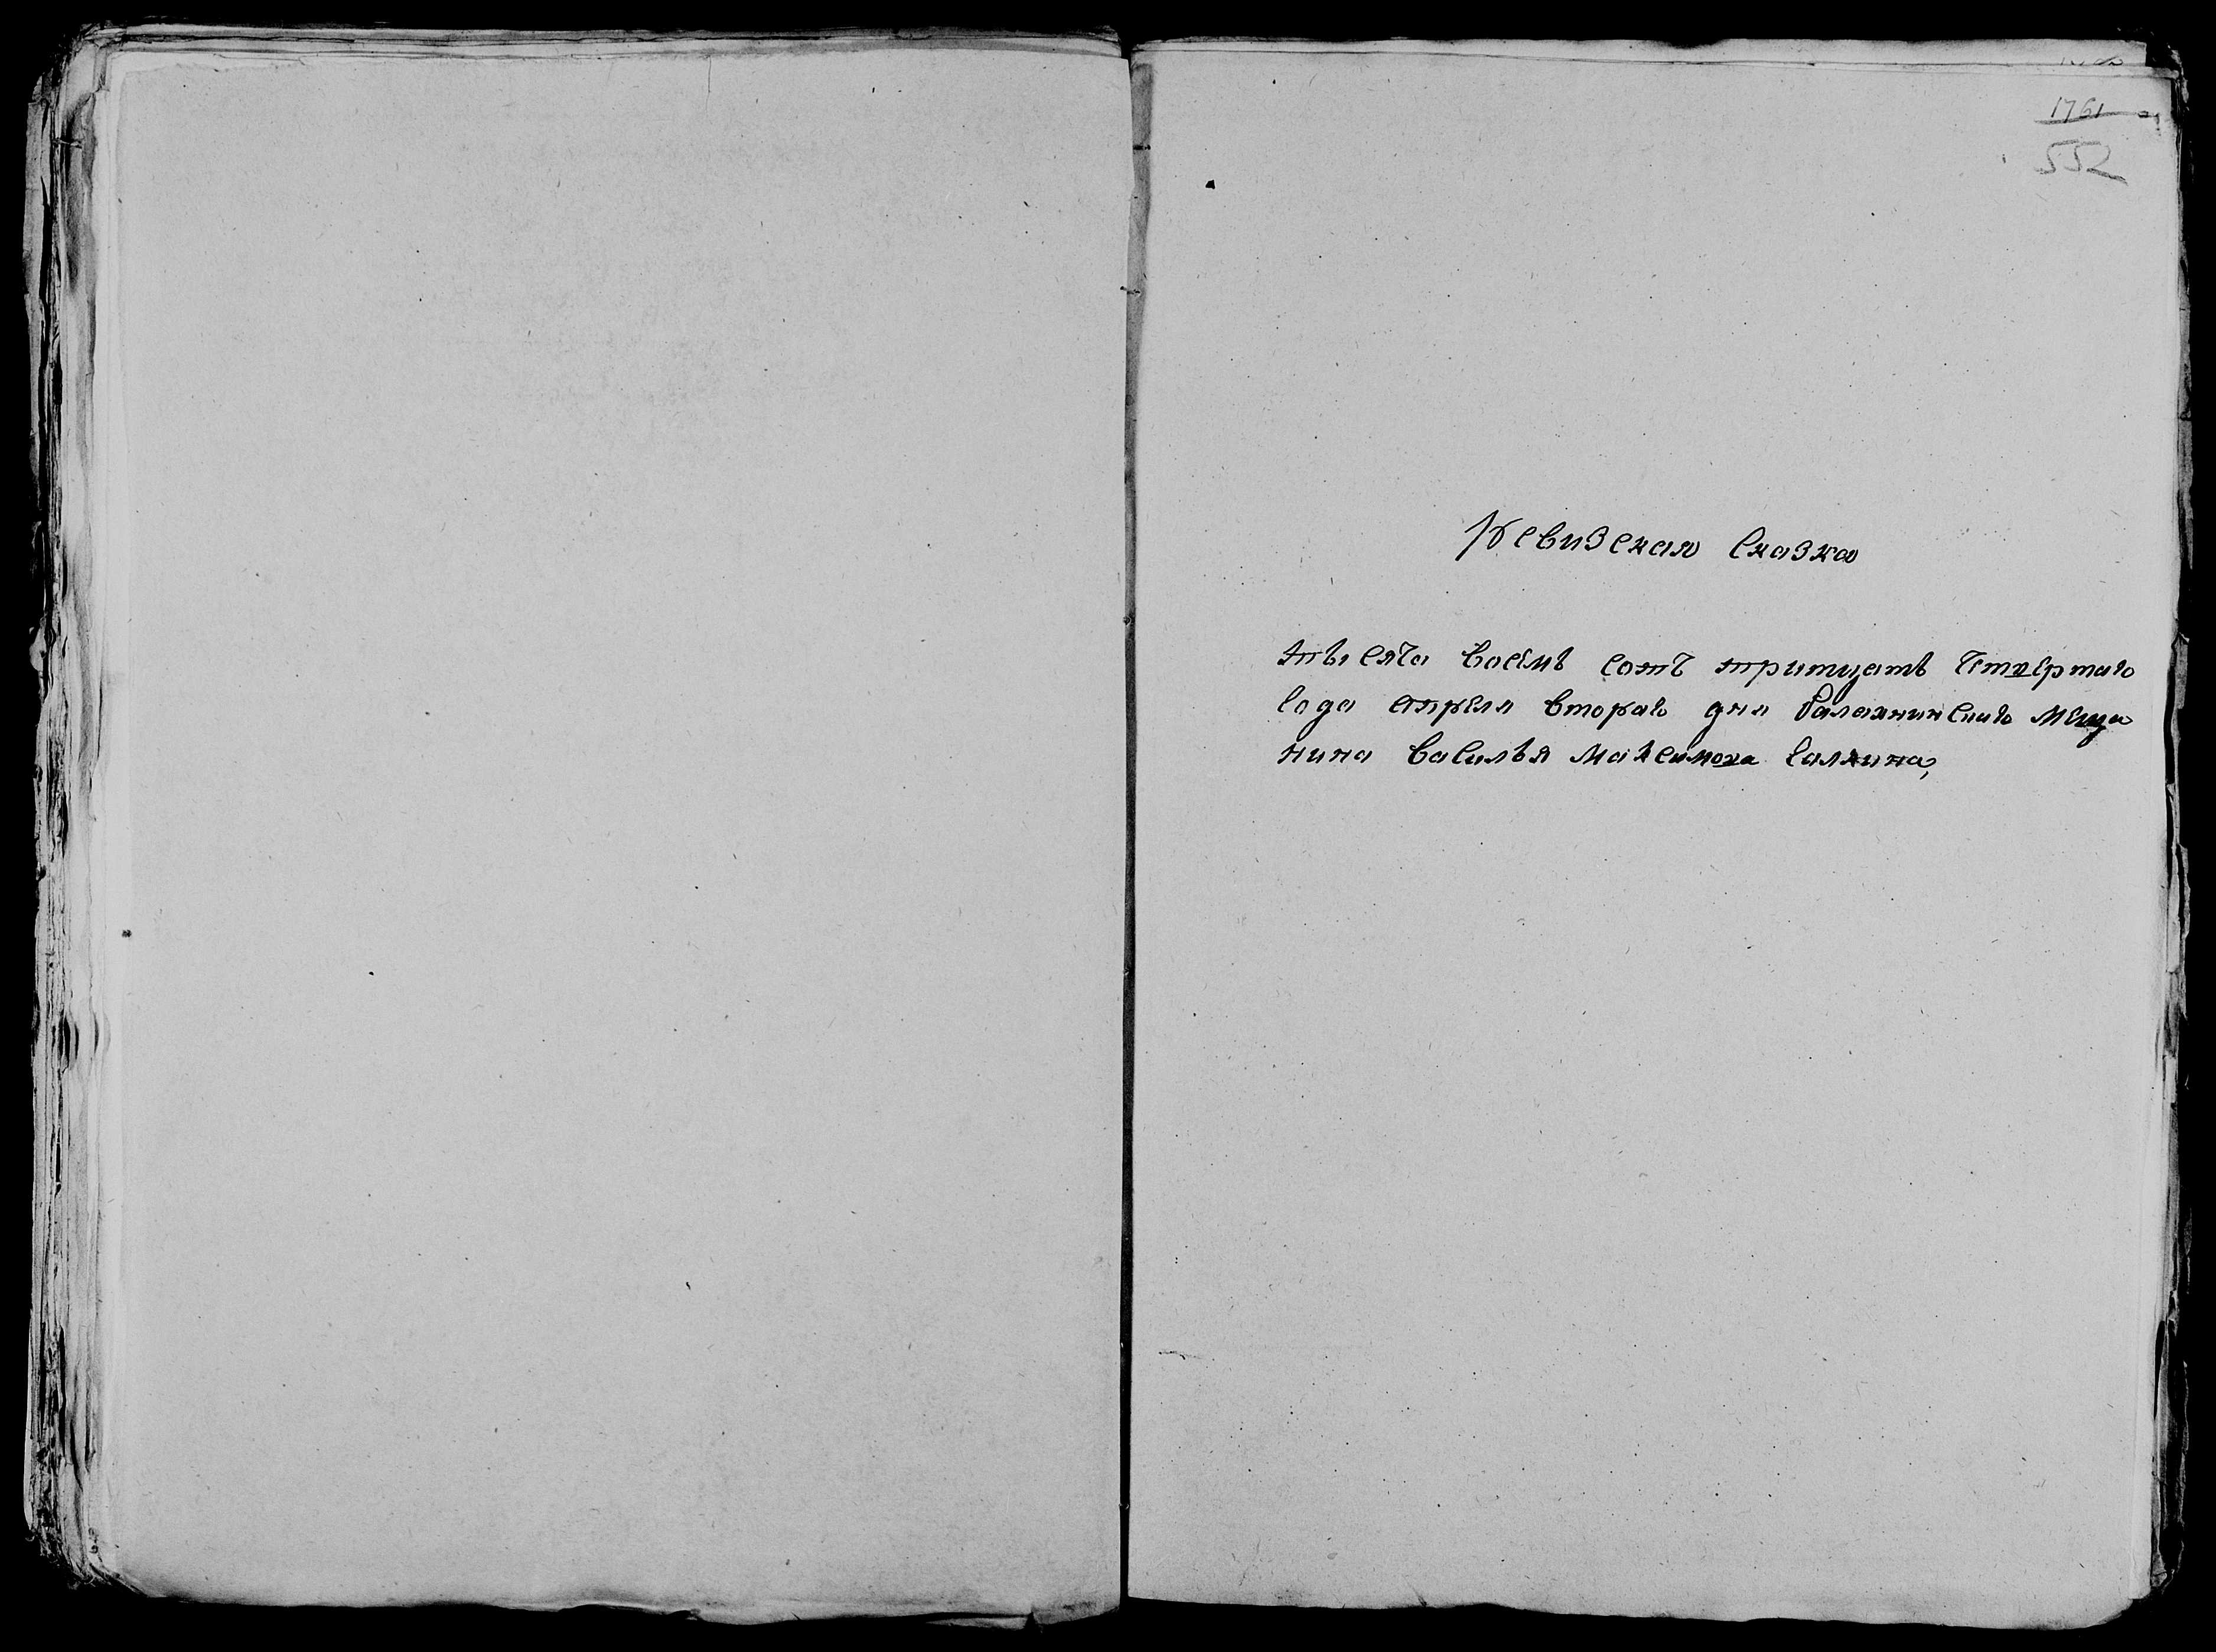 1761
552
Ревизская сказка
тысяча восемь сотъ тритцать четвертаго
года апреля втораго дня балахнинскаго меща
нина василья максимова галкина,